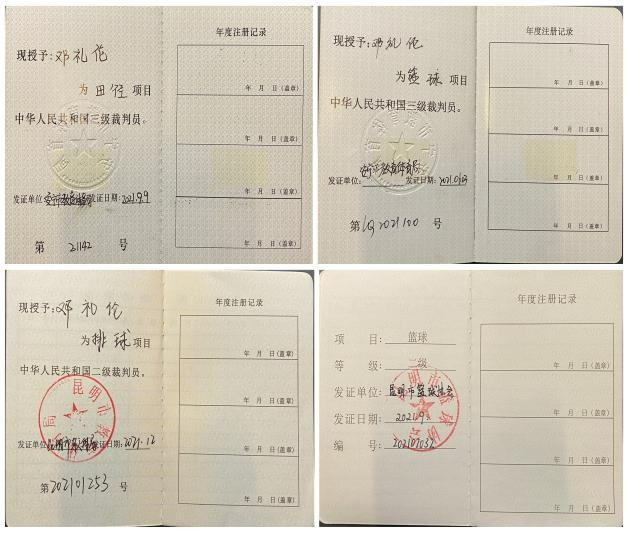 现授予:邓礼伦
为田径项目
中华人民共和国三级裁判员。
发证单位: 发证日期:2021.9.9
第 21142 号
年度注册记录
年 月 日(盖章)
年 月 日(盖章)
年 月 日(盖章)
年 月 日(盖章)
现授予:邓礼伦
为篮球项目
中华人民共和国三级裁判员。
发证单位: 发证日期:
第LQ2021100号
年度注册记录
年 月 日(盖章)
年 月 日(盖章)
年 月 日(盖章)
年 月 日(盖章)
现授予:邓礼伦
为排球项目
中华人民共和国二级裁判员。
发证单位: 发证日期:2021.12
第202101253号
年度注册记录
年 月 日(盖章)
年 月 日(盖章)
年 月 日(盖章)
年 月 日(盖章)
项 目:篮球
等 级:二级
发证单位:昆明市篮球协会
发证日期:2021.9
编 号:202107032
年度注册记录
年 月 日(盖章)
年 月 日(盖章)
年 月 日(盖章)
年 月 日(盖章)